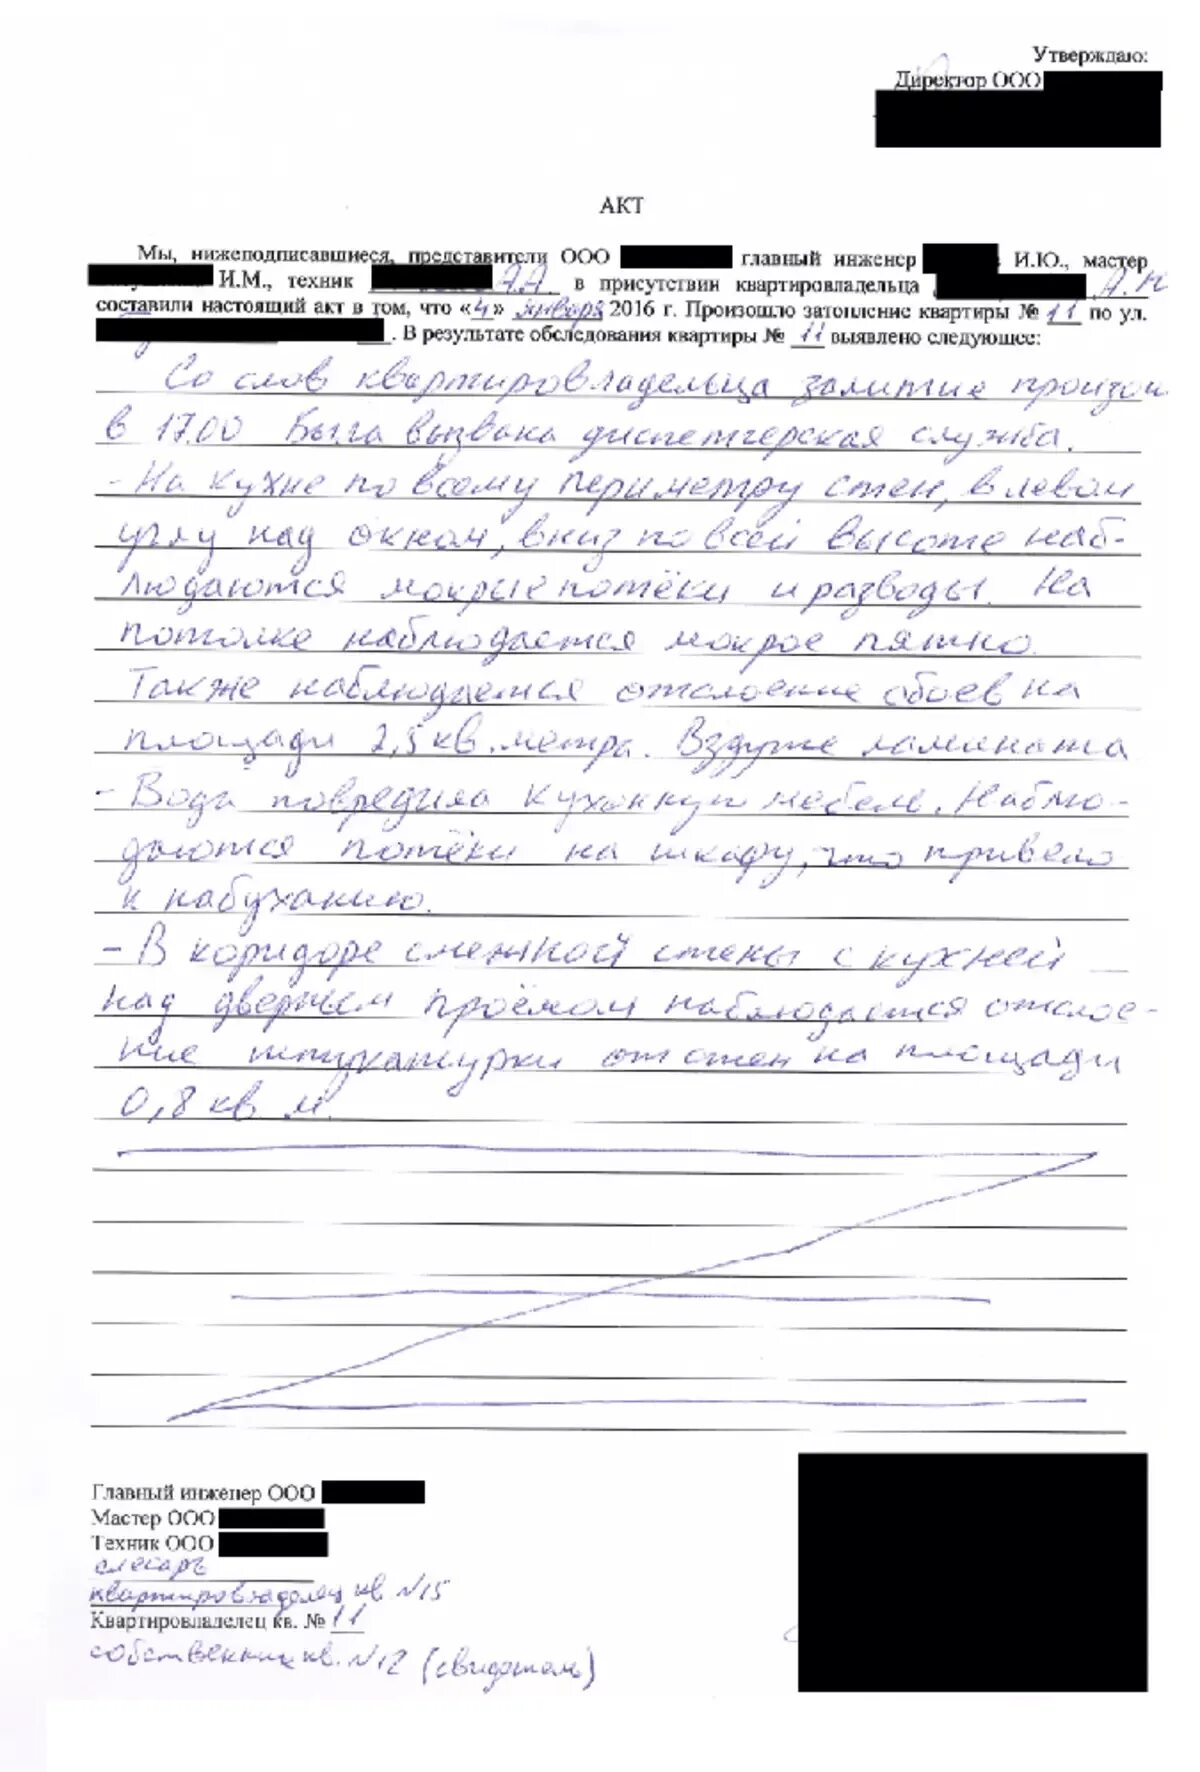 Утверждаю:
Директор ООО
АКТ
Мы, нижеподписавшиеся, представители ООО главный инженер И.Ю., мастер
И.М., техник А.А в присутствии квартировладельца А.Н
составили настоящий акт в том, что «4» января 2016 г. Произошло затопление квартиры № 11 по ул.
. В результате обследования квартиры № 11 выявлено следующее:
Со слов квартировладельца залитие произош
в 17.00 Была вызвана диспетчерская служба.
- На кухне по всему периметру стен, в левом
углу над окном, вниз по всей высоте наб-
людаются мокрые потёки и разводы. На
потолке наблюдается мокрое пятно.
Также наблюдается отслоение обоев на
площади 2,5 кв. метра. Вздутие ламината
- Вода повредила кухонную мебель. Наблю-
даются потёки на шкафу, что привело
к набуханию.
- В коридоре смежной стены с кухней
над дверным проёмом наблюдается отслое-
ние штукатурки от стен на площади
0,8 кв м.
Главный инженер ООО
Мастер ООО
Техник ООО
слесарь
квартировладелец кв N15
Квартировладелец кв. № 11
собственник кв. N12 (свидетель)